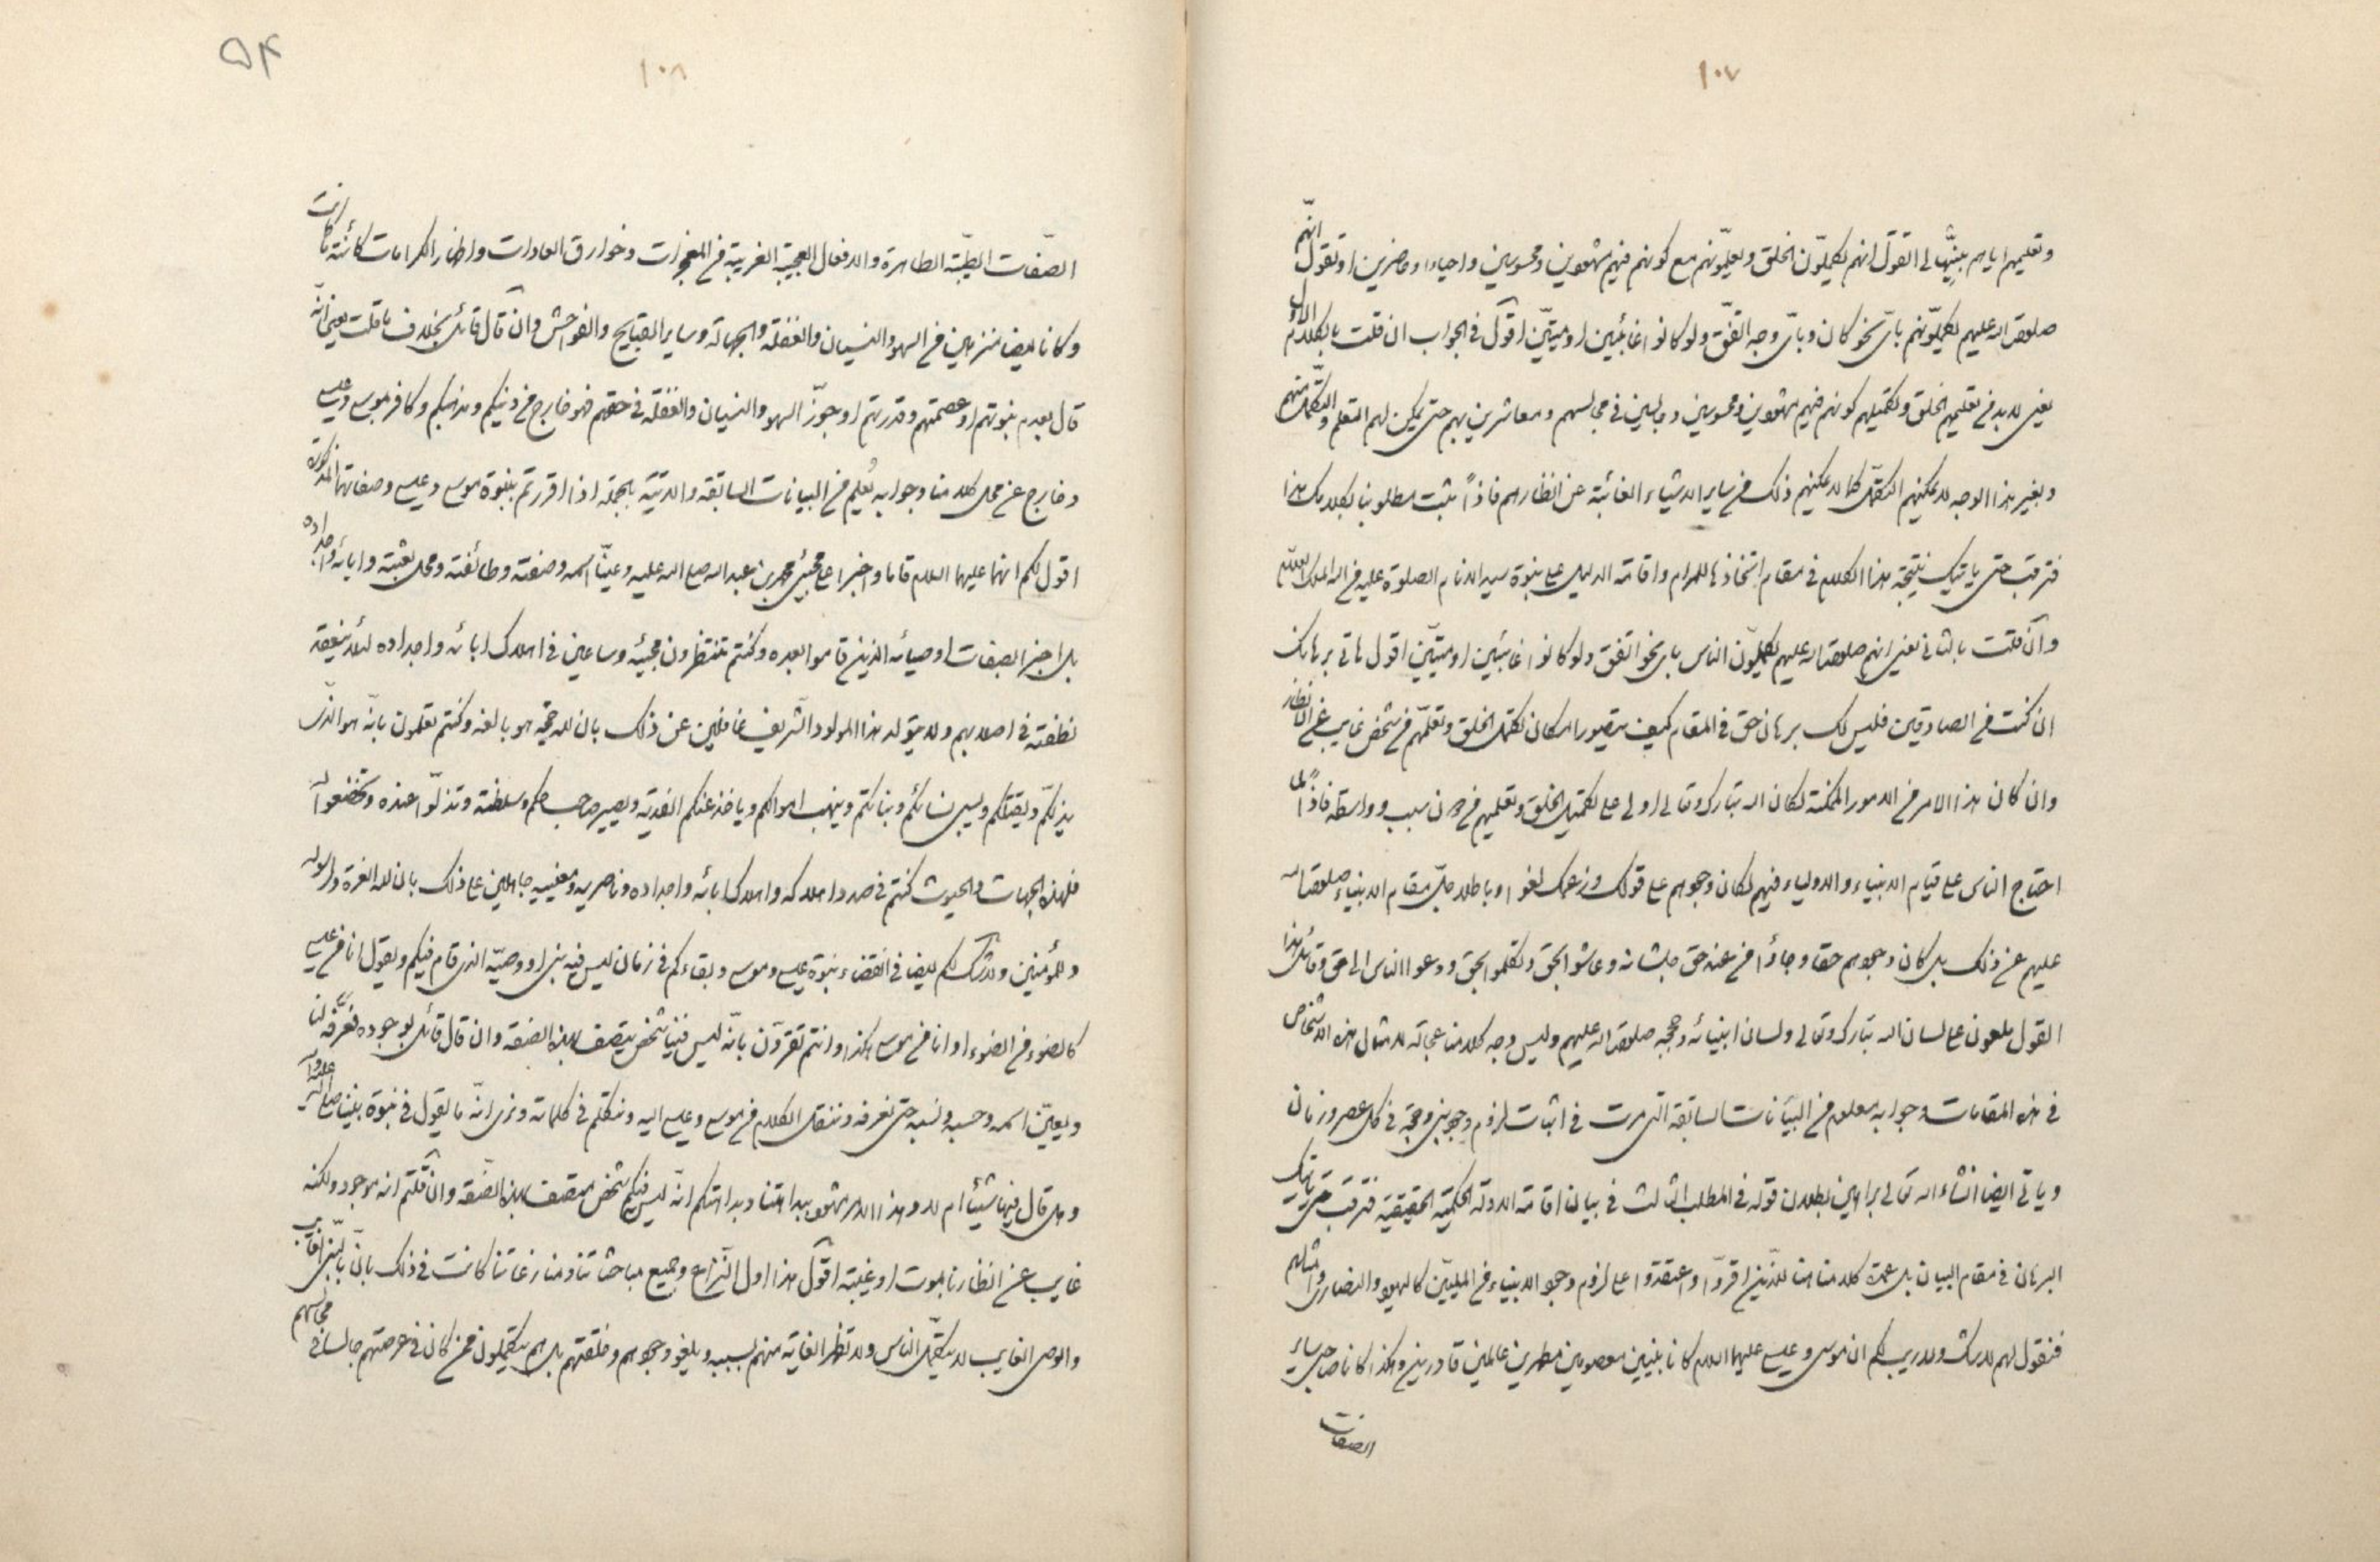 ١٠٧
وتعليمهم اياهم بينهما الى القول انهم يكملون الخلق ويعلمونهم مع كونهم فيهم مشهودين ومحسوسين واحياء او حاضرين او تقول انهم
صلوات الله عليهم يكملونهم باى نحو كان وباى وجه اتفق ولو كانوا غائبين او ميتين اقول فى الجواب ان قلت بالكلام الاول
يعنى لابد فى تعليمهم الخلق وتكميلهم كونهم فيهم مشهودين ومحسوسين وجالسين فى مجالسهم ومعاشرين بهم حتى يمكن لهم التعلم والتكمل منهم
وبغير هذا الوجه لا يمكنهم التكمل كما لا يمكنهم ذلك فى ساير الاشياء الغائبة عن انظارهم فاذاً يثبت مطلوبنا بكلامك هذا
فترقب حتى ياتيك نتيجة هذا الكلام فى مقام اتخاذها للمرام واقامة الدليل على نبوة سيد الانام الصلوة عليه من الله الملك العلام
وان قلت بالثانى يعنى انهم صلوات الله عليهم يكملون الناس باى نحو اتفق ولو كانوا غائبين او ميتين اقول هاتى برهانك
ان كنت من الصادقين فليس لك برهان حق فى المقام كيف يتصور امكان تكمل الخلق وتعلمهم من شخص غايب عن الانظار
وان كان هذا الامر من الامور الممكنة لكان الله تبارك وتعالى اولى على تكميل الخلق وتعليمهم من دون سبب وواسطة فاذاً لما
احتاج الناس على قيام الانبياء والاولياء فيهم لكان وجودهم على قولك وزعمك لغوا وباطلا جل مقام الانبياء صلوات الله
عليهم عن ذلك بل كان وجودهم حقا وجاؤا من عند حق جل شانه وعاشوا بالحق وتكلموا بالحق ودعوا الناس الى الحق وقائل هذا
القول ملعون على لسان الله تبارك وتعالى ولسان انبيائه وحججه صلوات الله عليهم وليس وجه كلامنا عجالة لامثال هذه الاشخاص
فى هذه المقامات وجوابه معلوم من البيانات السابقة التى مرت فى اثبات لزوم وجود نبى وحجة فى كل عصر وزمان
وياتى ايضا انشاء الله تعالى براهين بطلان قوله فى المطلب الثالث فى بيان اقامة الادلة الحكمية الحقيقية فترقب حتى ياتيك
البرهان فى مقام البيان بل عمدة كلامنا هنا للذين اقروا واعتقدوا على لزوم وجود الانبياء من المليين كاليهود والنصارى وامثالهم
فنقول لهم لا شك ولا ريب لكم ان موسى وعيسى عليهما السلام كانا نبيين معصومين مطهرين عالمين قادرين وهكذا كانا صاحبى ساير
الصفات
۵۴
١٠٨
الصفات الطيبة الطاهرة والافعال العجيبة الغريبة من المعجزات وخوارق العادات واظهار الكرامات كائنة ما كانت
وكانا ايضا منزهين من السهو والنسيان والغفلة والجهالة وساير القبايح والفواحش وان قال قائل بخلاف ما قلت يعنى انه
قال بعدم نبوتهم او عصمتهم وقدرتهم او جوز السهو والنسيان والغفلة فى حقهم فهو خارج من دينكم ومذهبكم وكافر بموسى وعيسى
وخارج عن محل كلامنا وجوابه يُعلم من البيانات السابقة والاتية بالجملة اذا اقررتم بنبوة موسى وعيسى وصفاتهما المذكورة
اقول لكم انهما عليهما السلام قاما واخبرا على مجيئ محمد بن عبدالله صلى الله عليه وعينا اسمه وصفته وطائفته ومحل بعثته وابائه واجداده
بل اخبرا بصفات اوصيائه الذين قاموا بعده وكنتم تنتظرون مجيئه وساعين فى اهلاك ابائه واجداده لئلا ينعقد
نطفته فى اصلابهم ولا يتولد هذا المولود الشريف غافلين عن ذلك بان لله حجة هو بالغه وكنتم تعلمون بانه هو الذى
يذلكم ويقتلكم ويسبى نسائكم وبناتكم وينهب اموالكم وياخذ عنكم الفدية ويصير صاحب حكم وسلطنة وتذلوا عنده وتخضعوا له
فلهذه الجهات والحيوث كنتم فى صدد اهلاكه واهلاك ابائه واجداده وناصريه ومعينيه جاهلين على ذلك بان لله العزة ولرسوله
وللمؤمنين ولا شك لكم ايضا فى انقضاء نبوة عيسى وموسى وبقاءكم فى زمان ليس فيه نبى او وصيه الذى قام فيكم ويقول انا من عيسى
كالضوء من الضوء او انا من موسى هكذا وانتم تقرون بانه ليس فينا شخص يتصف بهذه الصفة وان قال قائل بوجوده نعرفه لنا
ويعين اسمه وحسبه ونسبه حتى نعرفه وننقل الكلام من موسى وعيسى اليه ونتكلم فى كلماته ونرى انه ما يقول فى نبوة نبينا صلى الله عليه وآله
وهل قال فيها شيئا ام لا وهذا الامر مشهود ببداهتنا وبداهتكم انه ليس فيكم شخص متصف بهذه الصفة وان قلتم انه موجود ولكنه
غايب عن انظارنا بموت او غيبة اقول هذا اول النزاع وجميع مباحثاتنا ومنازعاتنا كانت فى ذلك بان النبى الغايب
والوصى الغايب لا يتكمل الناس ولا تظهر الغاية منهم بسببه ويلغو وجودهم وخلقتهم بل هم يتكملون ممن كان فى عرصتهم جالسا فى مجالسهم